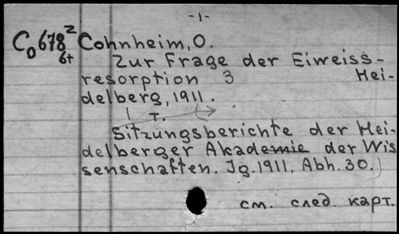 -1-
Co678² Cohnheim, O.
6t Zur Frage der Eiweiss-
resorption 3 Hei-
delberg, 1911.
1 т.
Sitzungsberichte der Hei-
delberger Akademie der Wis
senschaften. Jg. 1911, Abh. 30.)
см. след. карт.